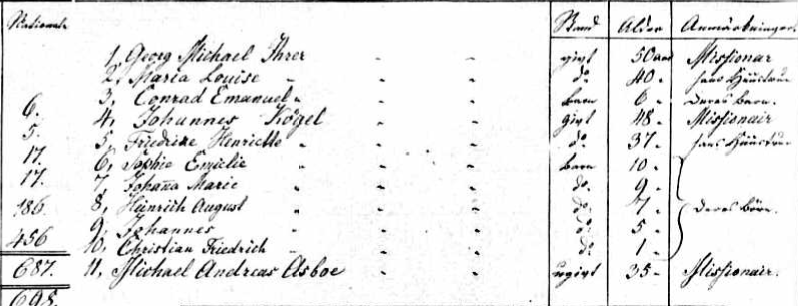 Stand Alder Anmærkninger
1, Georg Michael Ihrer " " " gift 50 aar Missionær
2, Maria Louise " " " do 40 " hans Huustru
3, Conrad Emanuel " " " barn 6 " deres barn.
6. 4, Johannes Kögel " " gift 48 " Missionair
5. 5, Friedrike Henriette " " " do. 37 " hans Huustru
17. 6, Sophie Emilie " " " barn 10 "
17. 7, Johanna Marie " " " do. 9 "
186. 8, Heinrich August " " " do. 7 " deres börn.
456 9, Johannes " " " do. 5 "
10, Christian Friedrich " " " do. 1 "
687. 11, Michael Andreas Asboe " " ugift 35 " Missionair.
698.